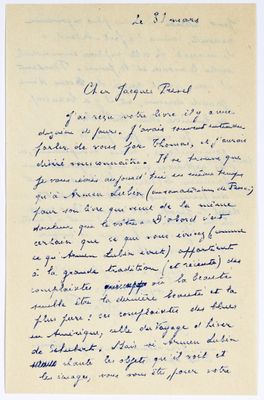 le 31 mars
Cher Jacques Prevel
J'ai reçu votre livre il y a une
dizaine de jours. J'avais souvent entendu
parler de vous par Thomas, et j'aurais
désiré vous connaître. Il se trouve que
je vous écris aujourd'hui en même temps
qu'à Armen Lubin
pour son livre qui vient de la même
douleur que le vôtre. D'abord c'est
certain que ce que vous écrivez (comme
ce qu'Armen Lubin écrit) appartient
à la grande tradition (et récente) des
complaintes où la beauté
semble être la dernière beauté et la
plus pure : ces complaintes des blues
en Amérique, celle du Voyage d'hiver
de Schubert. Mais si Armen Lubin
chante les objets qu'il voit et
les images, vous vous êtes pour votre